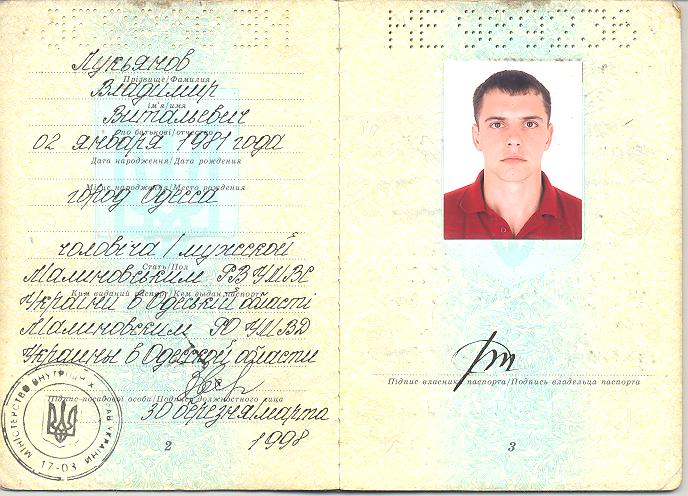 Лукьянов
Прізвище/Фамилия
Владимир
ім'я/имя
Витальевич
по батькові/отчество
02 января 1981 года
Дата народження/Дата рождения
Місце народження/Место рождения
город Одесса
чоловіча/мужской
Стать/Пол
Малиновським РВ УМВС
Ким виданий паспорт/Кем выдан паспорт
України в Одеській області
Малиновским РО УМВД
Украины в Одесской области
Підпис посадової особи/Подпись должностного лица
30 березня/марта
1998
МІНІСТЕРСТВО ВНУТРІШНІХ СПРАВ УКРАЇНИ
17-03
2
НЕ
Підпис власника паспорта/Подпись владельца паспорта
3